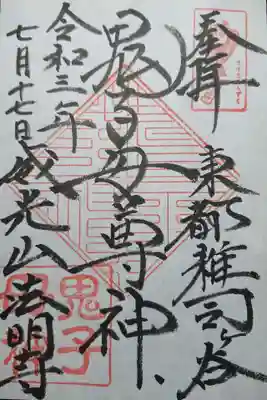 奉拝
東都雜司ヶ谷
鬼子母尊神
令和三年
七月十七日
威光山 法明寺
鬼子
母神